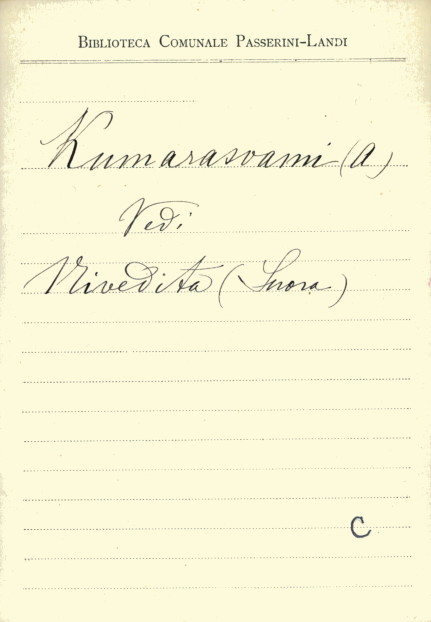 BIBLIOTECA COMUNALE PASSERINI-LANDI
Kumarasvami (A)
Vedi
Nivedita (Suora)
C